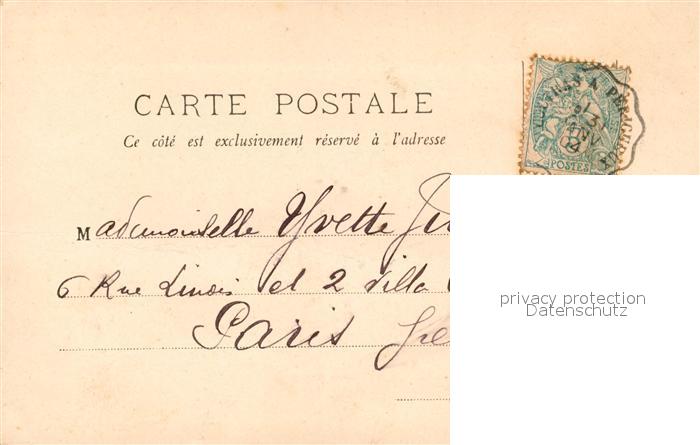 CARTE POSTALE
Ce côté est exclusivement réservé à l'adresse
POSTES
Mademoiselle Yvette
6 Rue Linois et 2 villa
Paris
privacy protection
Datenschutz